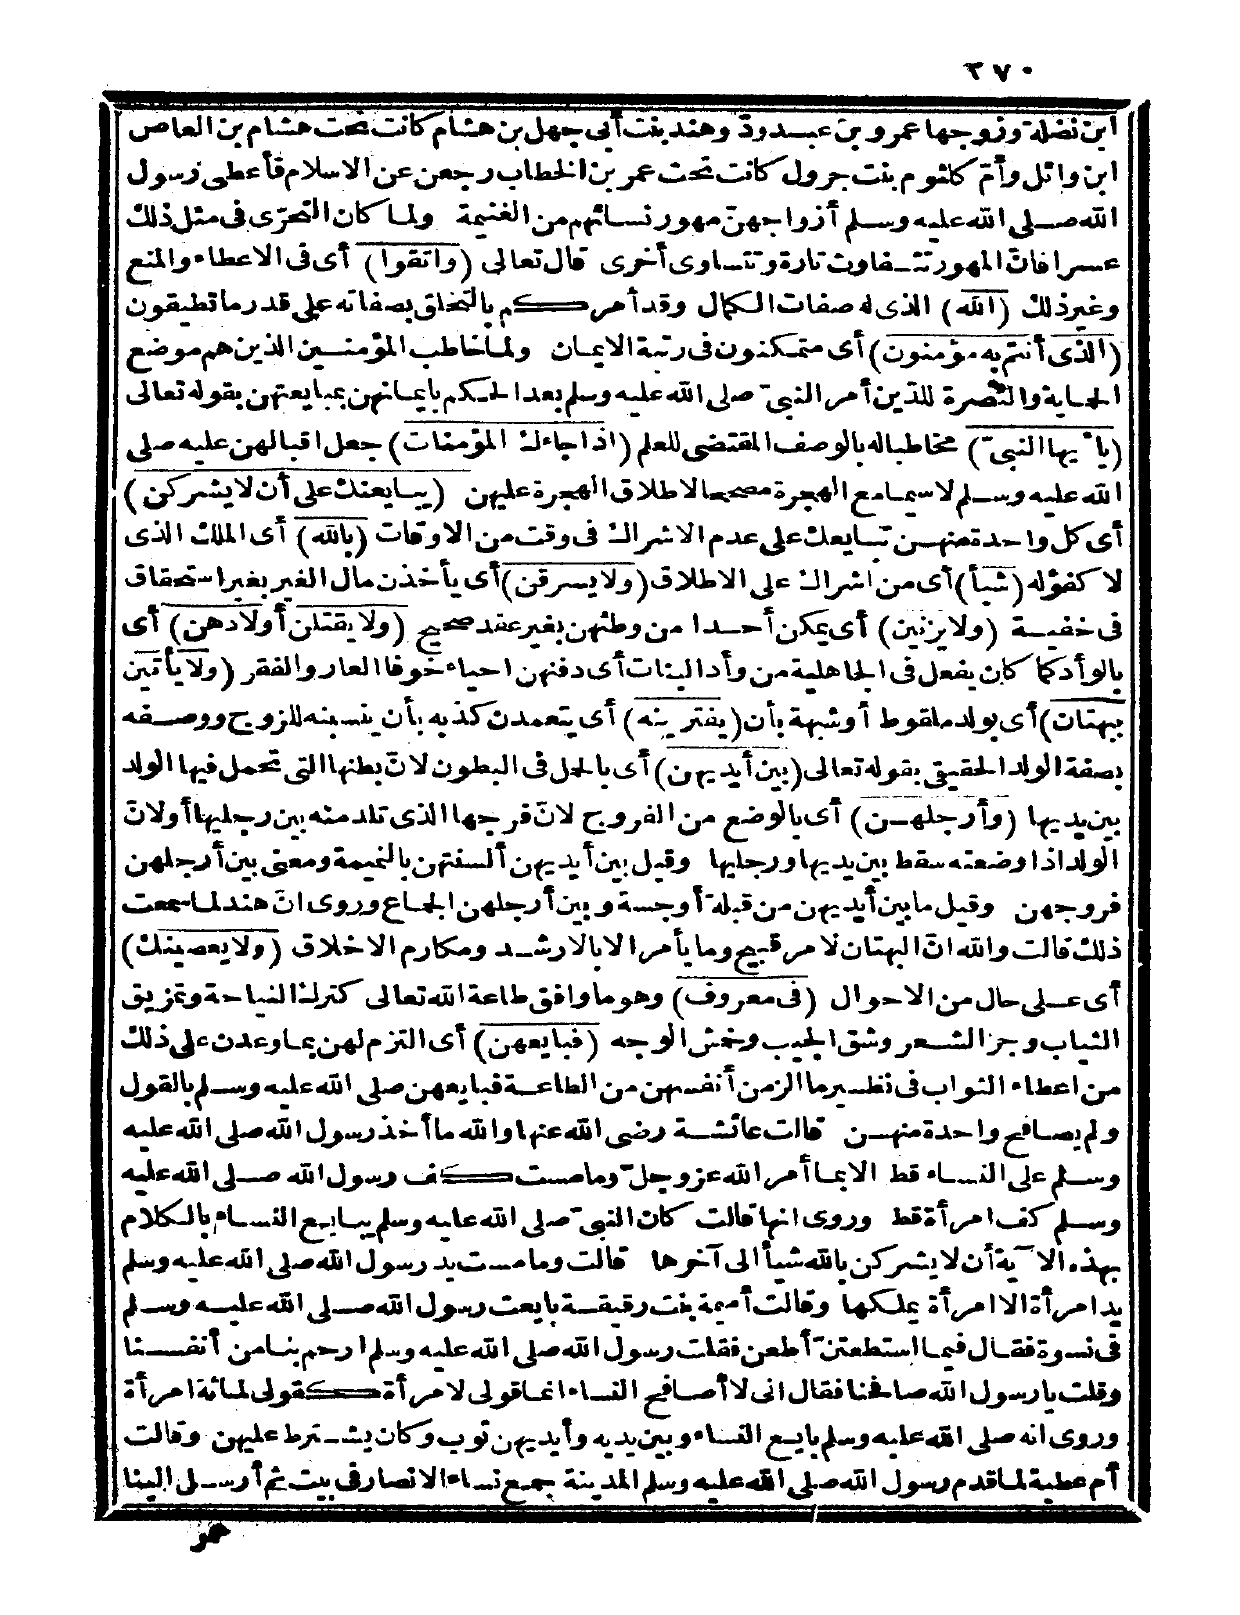 ٢٧٠
ابن نضلة وزوجها عمرو بن عبدودّ وهند بنت أبى جهل بن هشام كانت تحت هشام بن العاص
ابن وائل وأمّ كلثوم بنت جرول كانت تحت عمر بن الخطاب رجعن عن الاسلام فأعطى رسول
الله صلى الله عليه وسلم أزواجهنّ مهور نسائهم من الغنيمة ولما كان التحرّى فى مثل ذلك
عسرا فانّ المهور تتفاوت تارة وتتساوى أخرى قال تعالى (واتقوا) أى فى الاعطاء والمنع
وغير ذلك (الله) الذى له صفات الكمال وقد أمركم بالتخلق بصفاته على قدر ما تطيقون
(الذى أنتم به مؤمنون) أى متمكنون فى رتبة الايمان ولما خاطب المؤمنين الذين هم موضع
الحماية والنصرة للدّين أمر النبىّ صلى الله عليه وسلم بعد الحكم بايمانهن بمبايعتهن بقوله تعالى
(يا أيها النبىّ) مخاطبا له بالوصف المقتضى للعلم (اذا جاءك المؤمنات) جعل اقبالهن عليه صلى
الله عليه وسلم لاسيما مع الهجرة مصححا لاطلاق الهجرة عليهن (يبايعنك على أن لا يشركن)
أى كل واحدة منهن تبايعك على عدم الاشراك فى وقت من الاوقات (بالله) أى الملك الذى
لا كفؤله (شيأ) أى من اشراك على الاطلاق (ولا يسرقن) أى يأخذن مال الغير بغير استحقاق
فى خفية (ولا يزنين) أى يمكن أحدا من وطئهن بغير عقد صحيح (ولا يقتلن أولادهن) أى
بالوأد كما كان يفعل فى الجاهلية من وأد البنات أى دفنهن احياء خوفا العار والفقر (ولا يأتين
ببهتان) أى بولد ملقوط أو شبهة بأن (يفترينه) أى يتعمدن كذبه بأن ينسبنه للزوج ووصفه
بصفة الولد الحقيقى بقوله تعالى (بين أيديهن) أى بالحمل فى البطون لانّ بطنها التى تحمل فيها الولد
بين يديها (وأرجلهن) أى بالوضع من الفروج لانّ فرجها الذى تلد منه بين رجليها أولانّ
الولد اذا وضعته سقط بين يديها ورجليها وقيل بين أيديهن ألسنتهن بالنميمة ومعنى بين أرجلهن
فروجهن وقيل ما بين أيديهن من قبلة أوجسة وبين أرجلهن الجماع وروى انّ هند لما سمعت
ذلك قالت والله انّ البهتان لامر قبيح وما يأمر الا بالارشد ومكارم الاخلاق (ولا يعصينك)
أى على حال من الاحوال (فى معروف) وهو ما وافق طاعة الله تعالى كترك النياحة وتمزيق
الثياب وجز الشعر وشق الجيب وخمش الوجه (فبايعهن) أى التزم لهن بما وعدن على ذلك
من اعطاء الثواب فى نظير ما الزمن أنفسهن من الطاعة فبايعهن صلى الله عليه وسلم بالقول
ولم يصافح واحدة منهن قالت عائشة رضى الله عنها والله ما أخذ رسول الله صلى الله عليه
وسلم على النساء قط الا بما أمر الله عز وجلّ وما مست كف رسول الله صلى الله عليه
وسلم كف امرأة قط وروى انها قالت كان النبىّ صلى الله عليه وسلم يبايع النساء بالكلام
بهذه الآية أن لا يشركن بالله شيأ الى آخرها قالت وما مست يد رسول الله صلى الله عليه وسلم
يد امرأة الا امرأة يملكها وقالت أميمة بنت رقيقة بايعت رسول الله صلى الله عليه وسلم
فى نسوة فقال فيما استطعتنّ أطعن فقلت رسول الله صلى الله عليه وسلم ارحم بنا من أنفسنا
وقلت يا رسول الله صافحنا فقال انى لا أصافح النساء انما قولى لامرأة كقولى لمائة امرأة
وروى انه صلى الله عليه وسلم بايع النساء وبين يديه وأيديهن ثوب وكان يشترط عليهن وقالت
أم عطية لما قدم رسول الله صلى الله عليه وسلم المدينة جمع نساء الانصار فى بيت ثم أرسل الينا
عمر